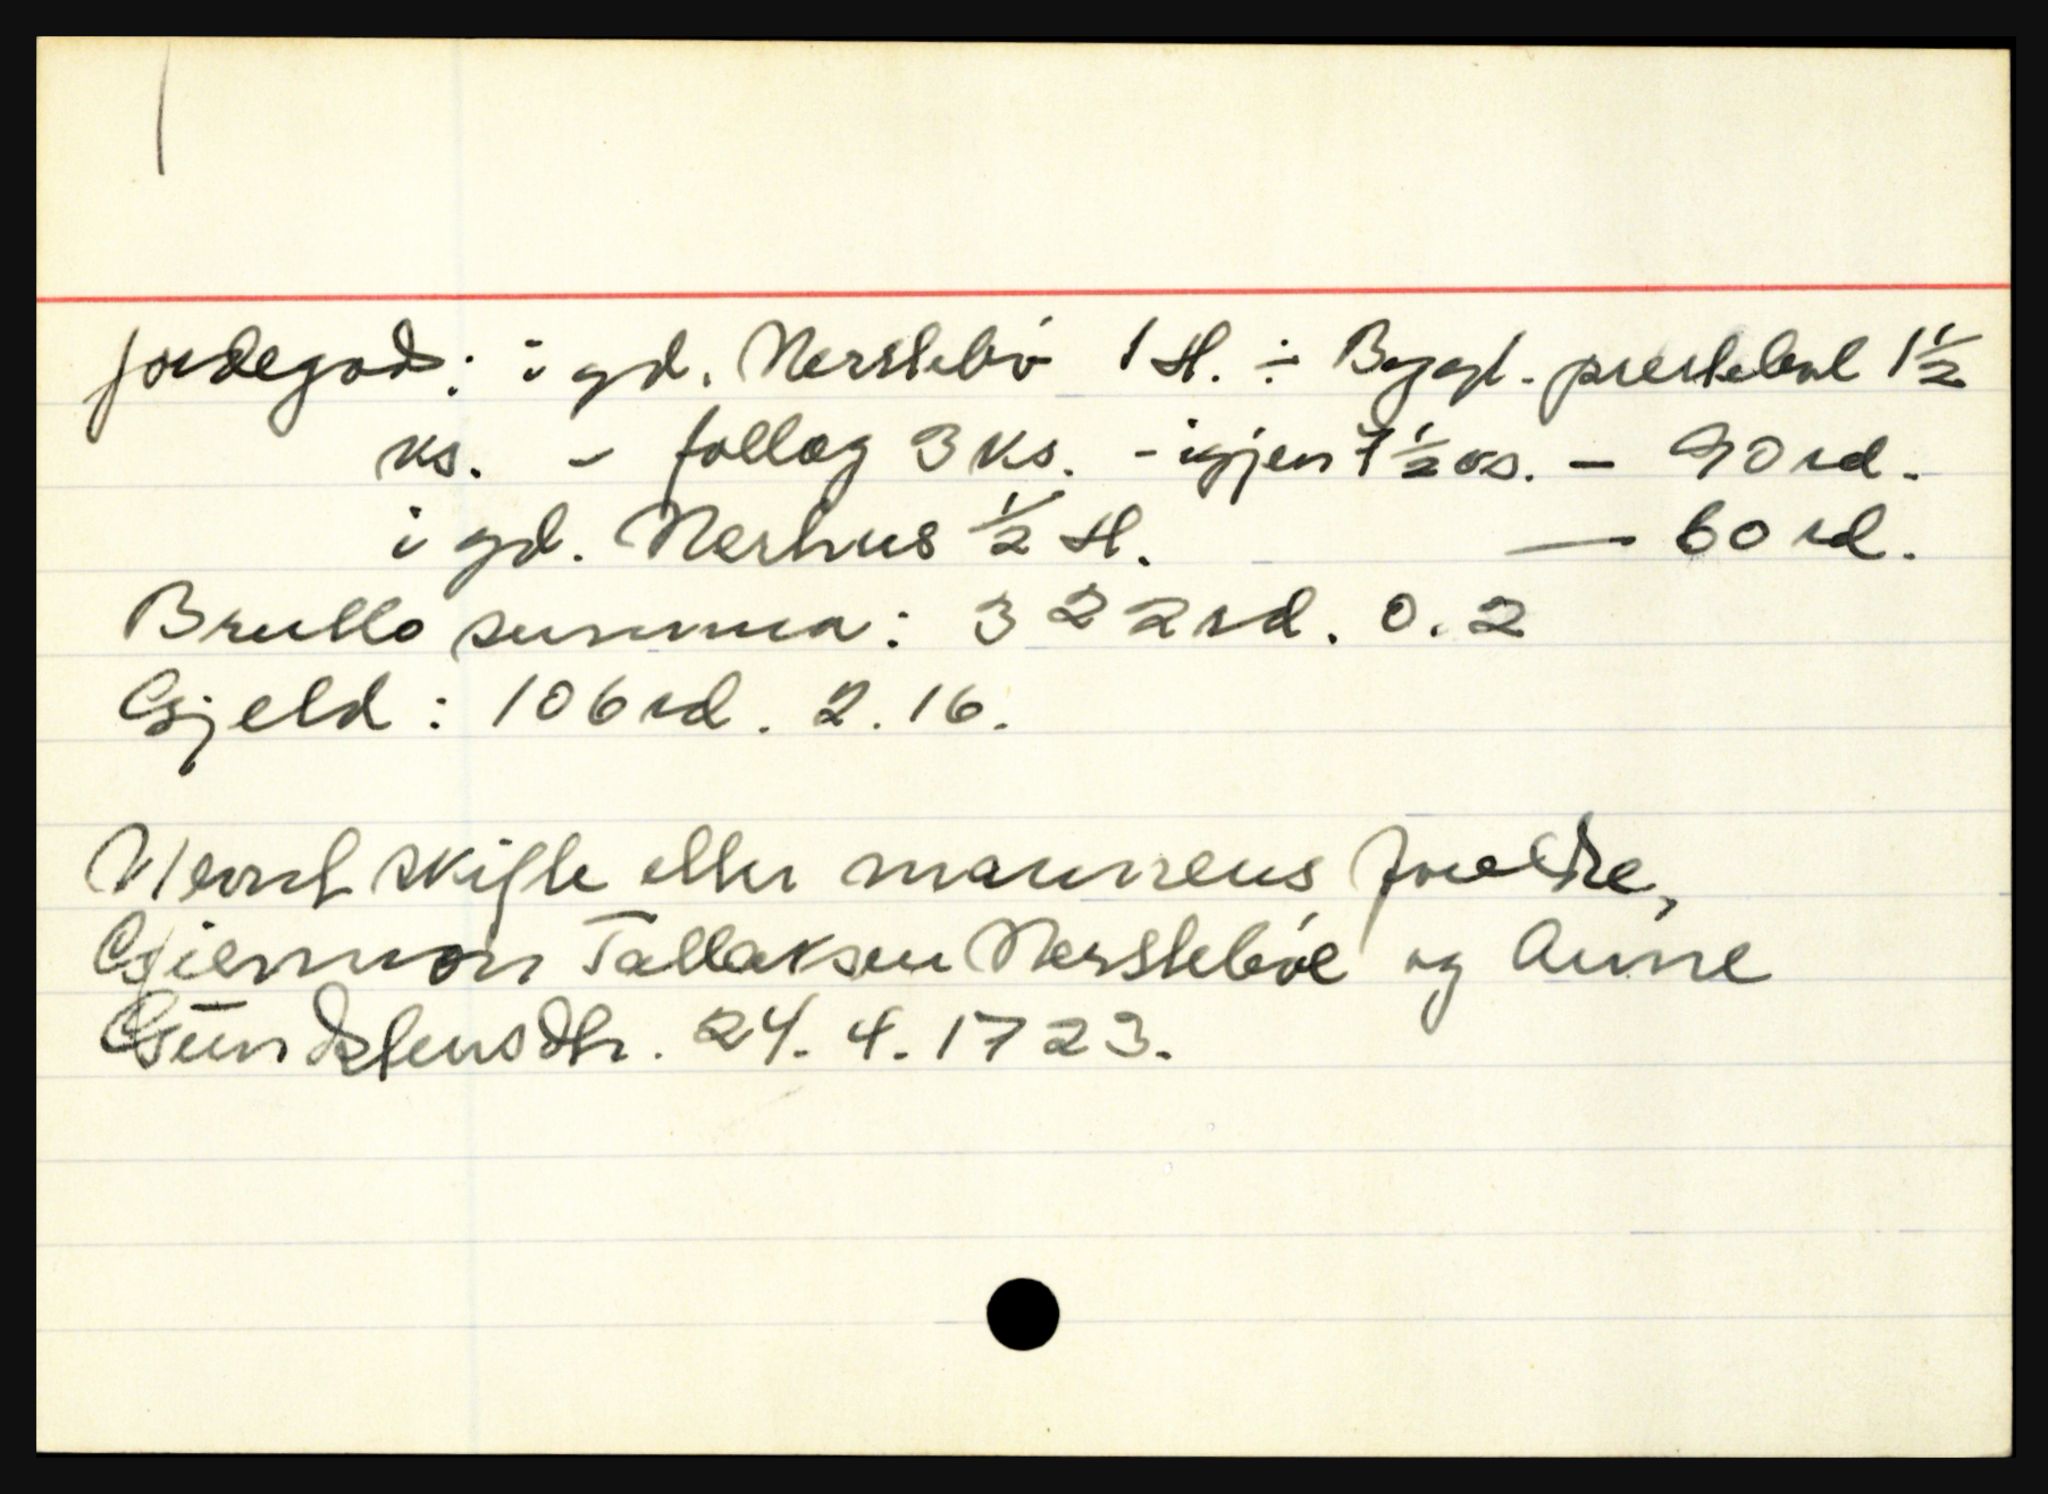 jordegods: i gd. Nerstebö 1 H. ÷ Byggl. prestebol 1½
ks. – follog 3 ks. – igjen 1½ ks. – 90 rd.
i gd. Nerhus ½ H. — 60 rd.
Brutto summa: 322 rd. 0. 2
Gjeld: 106 rd. 2. 16.
Nevnt skifte etter mannens foreldre,
Giermon Tallaksen Nersteböe og Anne
Gundersensdtr. 24. 4. 1723.